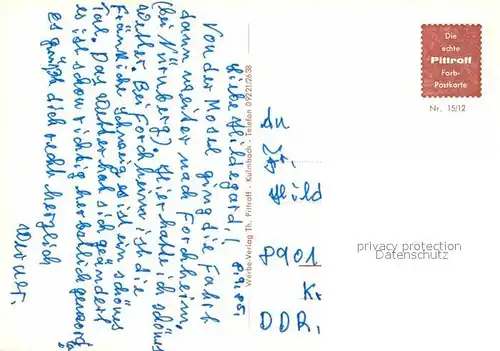 8.9.85.
Liebe Hildegard!
Von der Mosel ging die Fahrt
dann weiter nach Forchheim.
(bei Nürnberg) Hier hatte ich schönes
Wetter. Bei Forchheim ist die
Fränkische Schweiz es ist ein schönes
Tal. Das Wetter hat sich geändert
es ist schon richtig herbstlich geword
en
Es grüßt dich recht herzlich
Werner.
Werbe-Verlag Th. Pittroff - Kulmbach - Telefon 09221/2638
Die
echte
Pittroff
Farb-
Postkarte
Nr. 15/12
An
Fr.
Hild
8901
Kr
DDR.
privacy protection
Datenschutz